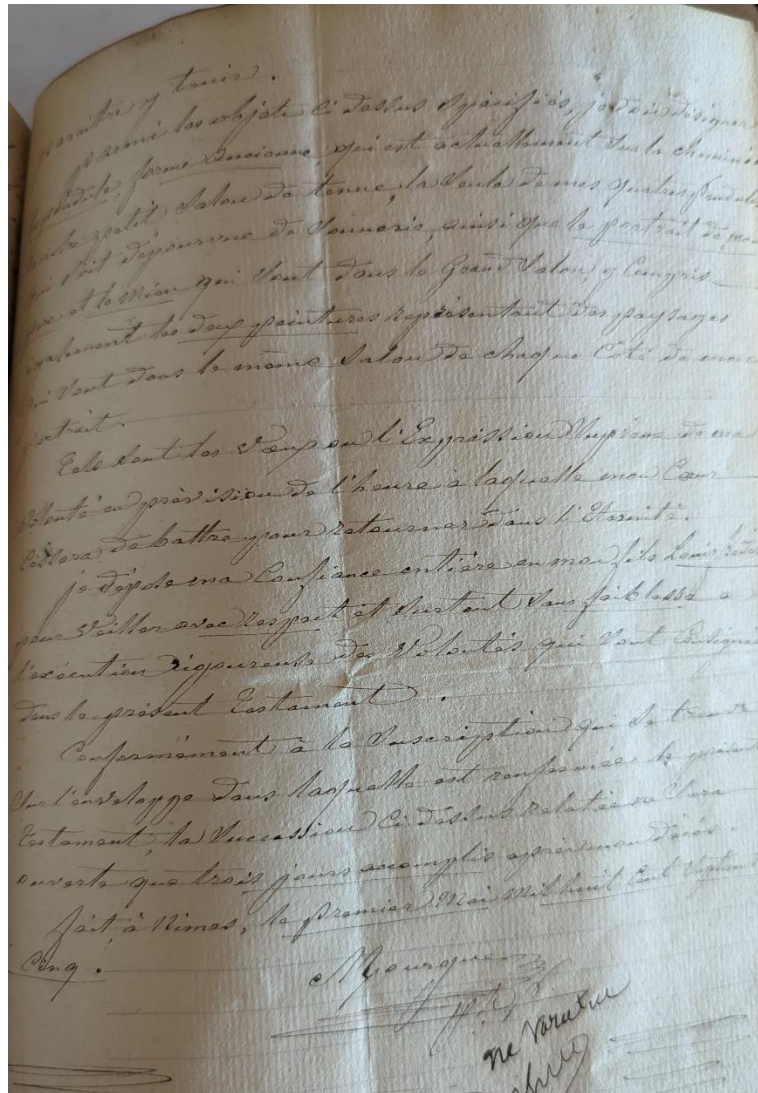 paraitre y tenir.
parmi les objets ci dessus spécifiés, je dois désigner
la pendule, forme ancienne, qui est actuellement sur la cheminée
petit salon de tenue, la seule de mes quatres pendules
qui soit dépourvue de sonnerie, ainsi que le portrait de mon
père et le mien qui sont dans le Grand Salon, y Compris
également les deux peintures représentant des paysages
qui sont dans le même Salon de chaque Côté de mon
portrait.
Tels sont les Vœux ou l'Expression Suprême de ma
Volonté en prévision de l'heure à laquelle mon Cœur
Cessera de battre pour retourner dans l'Eternité.
je dépose ma Confiance entière en mon fils Louis
pour Veiller avec respect et surtout sans faiblesse a
l'exécution rigoureuse des Volontés qui sont Consignées
dans le présent Testament.
Conformément à la Suscription qui se trouve
Sur l'enveloppe dans laquelle est renfermée le présent
Testament, la Succession Ci dessus relatée ne Sera
ouverte que trois jours accomplis après mon décès.
fait à Nimes, le premier Mai Mil huit Cent Septante
Cinq.
Mourgues
ne Varietur